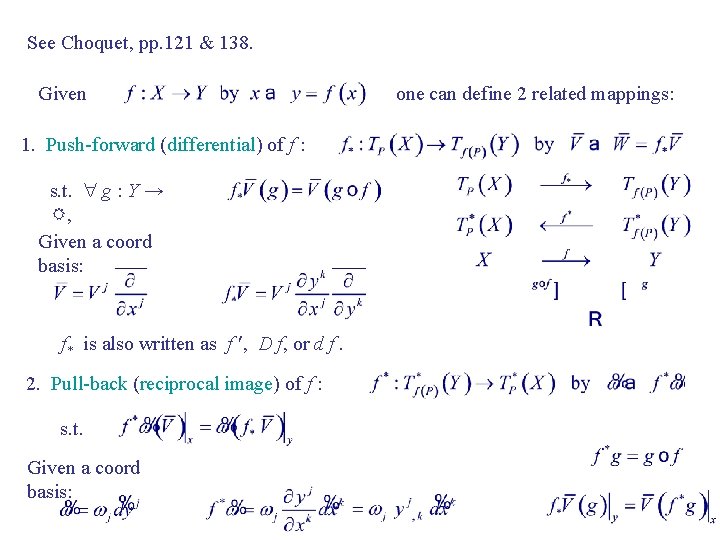 See Choquet, pp.121 & 138.
Given f : X → Y by x a y = f(x) one can define 2 related mappings:
1. Push-forward (differential) of f : f_* : T_P(X) → T_{f(P)}(Y) by V̅ a W̅ = f_*V̅
s.t. ∀ g : Y →
, f_*V̅(g) = V̅(g o f)
T_P(X) —f_*→ T_{f(P)}(Y)
T*_P(X) ←f*— T*_{f(P)}(Y)
X —f→ Y
g∘f ] [ g
R
Given a coord
basis:
V̅ = V^j ∂/∂x^j f_*V̅ = V^j ∂y^k/∂x^j ∂/∂y^k
f_* is also written as f ', D f, or d f .
2. Pull-back (reciprocal image) of f : f* : T*_{f(P)}(Y) → T*_P(X) by ω%a f*ω%
s.t. f*ω%(V̅)|_x = ω%(f_* V̅)|_y
f*g = g o f
Given a coord
basis:
ω%= ω_j dy%^j f*ω%= ω_j ∂y^j/∂x^k dx%^k = ω_j y^j_{,k} dx%^k
f_*V̅(g)|_y = V̅(f*g)|_x